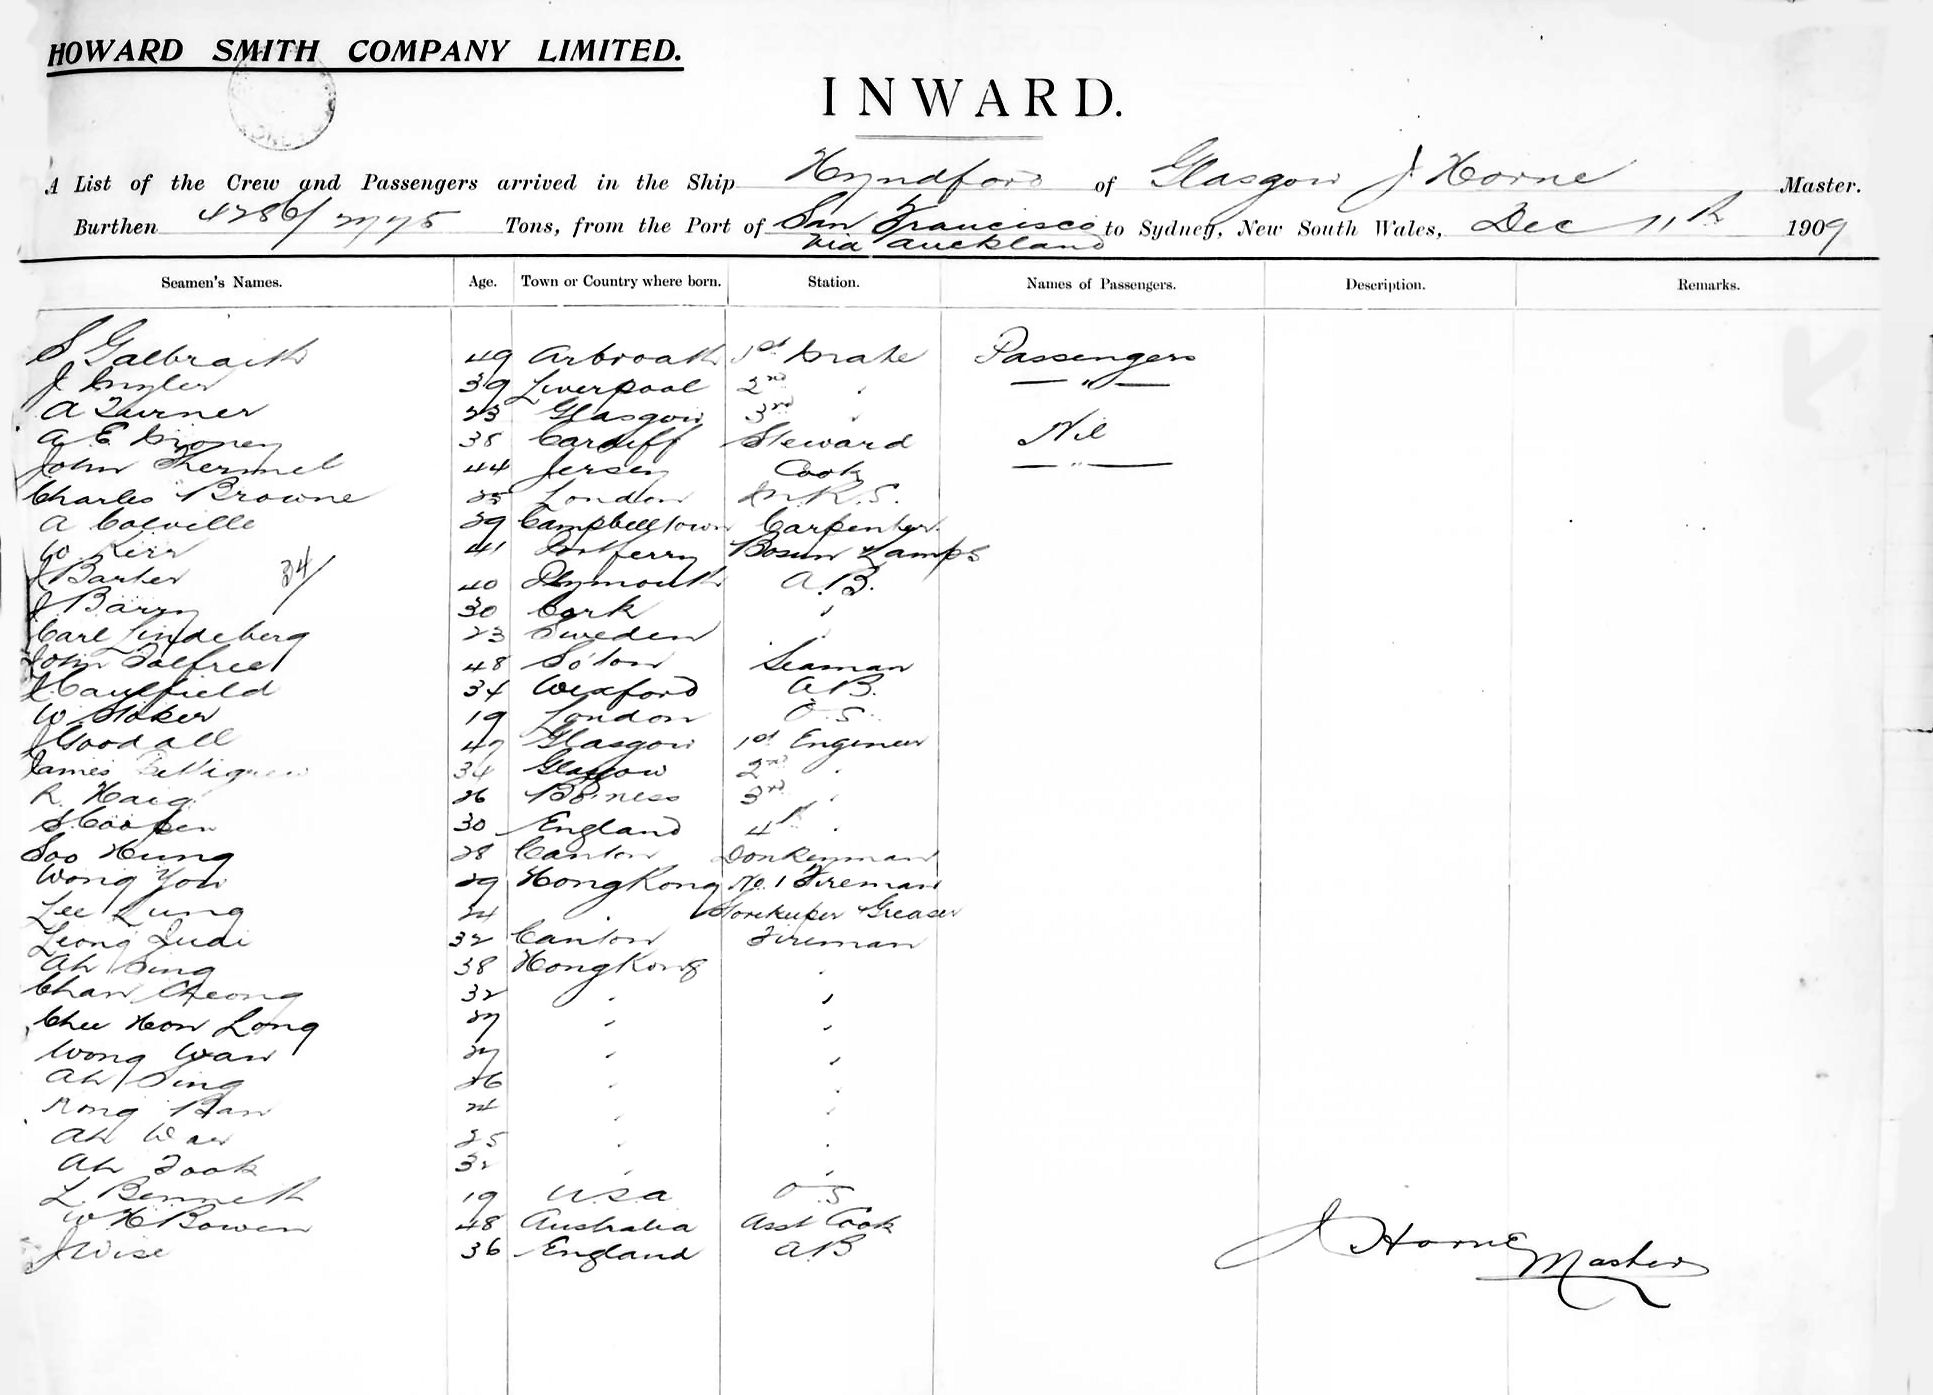 HOWARD SMITH COMPANY LIMITED.
INWARD.
A List of the Crew and Passengers arrived in the Ship Hyndford of Glasgow J Horne Master.
Burthen 4286/2775 Tons, from the Port of San Francisco to Sydney, New South Wales, Dec 11th 1909
via Auckland
Seamen's Names. Age. Town or Country where born. Station. Names of Passengers. Description. Remarks.
S Galbraith 49 Arbroath 1st Mate Passengers
J 39 Liverpool 2nd " — " —
A Turner 23 Glasgow 3rd "
A E 38 Cardiff Steward Nil
John 44 Jersey Cook — " —
Charles Browne 25 London M.R.S.
A Colville 29 Campbelltown Carpenter
W. Kerr 41 Bosun Lamps
J Barter 34/ 40 Plymouth A.B.
J Barry 30 Cork "
Carl Lindeberg 23 Sweden "
John Tolfree 48 So'ton Seaman
J Caulfield 34 Wexford A.B.
W Stoker 19 London O.S.
J Goodall 47 Glasgow 1st Engineer
James 34 Glasgow 2nd "
R. Haig 26 Bo'ness 3rd "
S Cooper 30 England 4th "
Soo Hung 28 Canton Donkeyman
Wong You 29 HongKong No. 1 Fireman
Lee Lung 24 " Storekeeper Greaser
Leong 32 Canton Fireman
Ah Sing 38 HongKong "
Chan Cheong 32 " "
Chee Hon Long 27 " "
Wong Wan 27 " "
Ah Sing 26 " "
Kong Ban 24 " "
Ah 25 " "
Ah Fook 32 " "
L. Bennett 19 U.S.A O.S
W H Bowen 48 Australia Asst Cook
J Wise 36 England A.B
J Horne Master